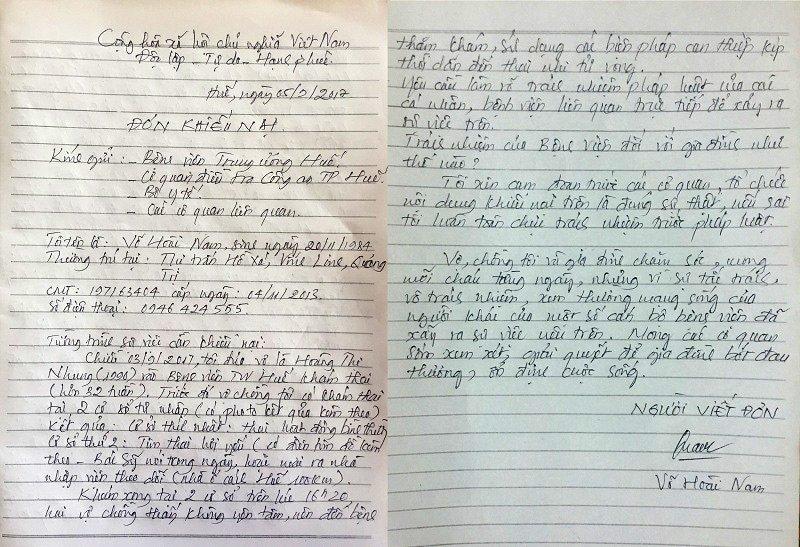 Cộng hòa xã hội chủ nghĩa Việt Nam
Độc lập - Tự do - Hạnh phúc.
Huế, ngày 05/9/2017
ĐƠN KHIẾU NẠI.
Kính gửi: - Bệnh viện Trung ương Huế.
- Cơ quan điều tra Công an TP Huế.
- Bộ y tế.
- Các cơ quan liên quan.
Tôi tên là: Võ Hoài Nam, sinh ngày 20/11/1984
Thường trú tại: Thị trấn Hồ Xá, Vĩnh Linh, Quảng
Trị
CMT: 197163404 cấp ngày: 04/11/2013.
Số điện thoại: 0946 424 555
Tường trình sự việc cần khiếu nại:
Chiều 03/9/2017, tôi đưa vợ là Hoàng Thị
Nhung (1990) vào Bệnh viện TW Huế khám thai
(hơn 32 tuần). Trước đó vợ chồng tôi có khám thai
tại 2 cơ sở tư nhân (có photo kết quả kèm theo).
Kết quả: Cơ sở thứ nhất: thai hoạt động bình thường
Cơ sở thứ 2: Tim thai hơi yếu (có điện kèm
theo - Bác Sỹ nói trong ngày, hoặc ngày ra nhà
nhập viện theo dõi (nhà ở cách Huế 100km).
Khám xong tại 2 cơ sở trên lúc 16h20,
hai vợ chồng thấy không yên tâm, nên đến bệnh
thăm khám, sử dụng các biện pháp can thiệp kịp
thời dẫn đến thai nhi tử vong.
Yêu cầu làm rõ trách nhiệm pháp luật của các
cá nhân, bệnh viện liên quan trực tiếp để xảy ra
sự việc trên.
Trách nhiệm của Bệnh viện đối với gia đình như
thế nào?
Tôi xin cam đoan trước các cơ quan, tổ chức
nội dung khiếu nại trên là đúng sự thật, nếu sai
tôi hoàn toàn chịu trách nhiệm trước pháp luật.
Vợ, chồng tôi và gia đình chăm sóc, mong
mỏi cháu từng ngày, nhưng vì sự tắc trách,
vô trách nhiệm, xem thường mạng sống của
người khác của một số cán bộ bệnh viện đã
xảy ra sự việc nêu trên. Mong các cơ quan
sớm xem xét, giải quyết để gia đình bớt đau
thương, ổn định cuộc sống.
NGƯỜI VIẾT ĐƠN
Võ Hoài Nam